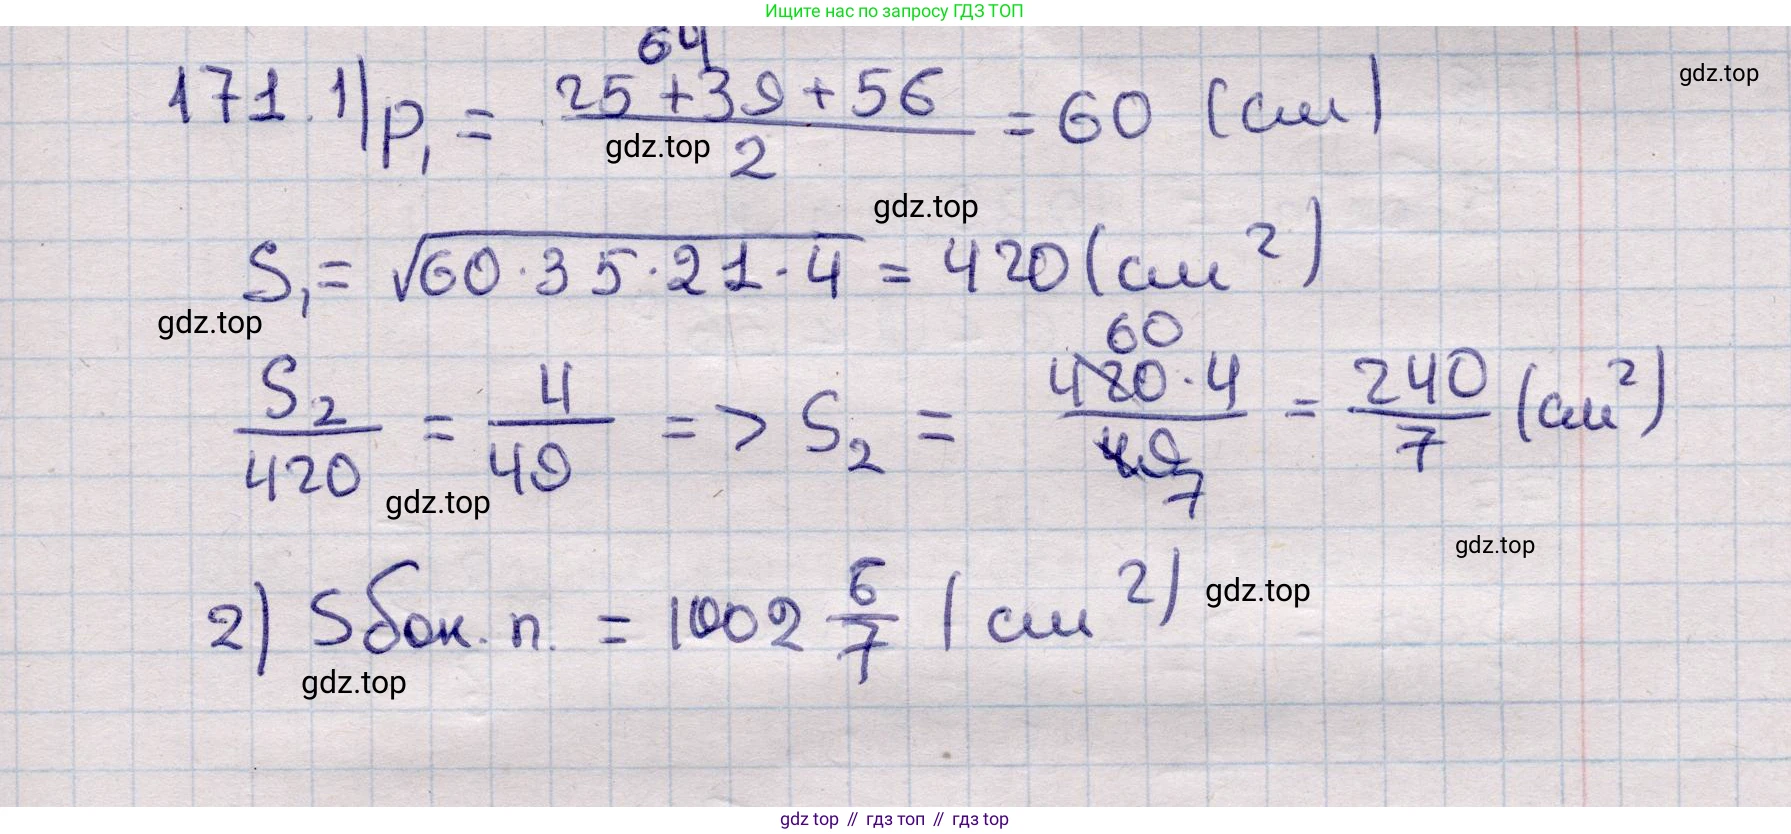 Ищите нас по запросу ГДЗ ТОП
gdz.top
64
171. 1) p₁ = (25 + 39 + 56)/2 = 60 (см)
gdz.top
gdz.top
S₁ = √(60·35·21·4) = 420 (см²)
gdz.top
60
S₂/420 = 4/49 => S₂ = (420·4)/49 = 240/7 (см²)
7
gdz.top
gdz.top
2) Sбок. п. = 1002 6/7 (см²)
gdz.top
gdz.top
gdz top // гдз топ // гдз top